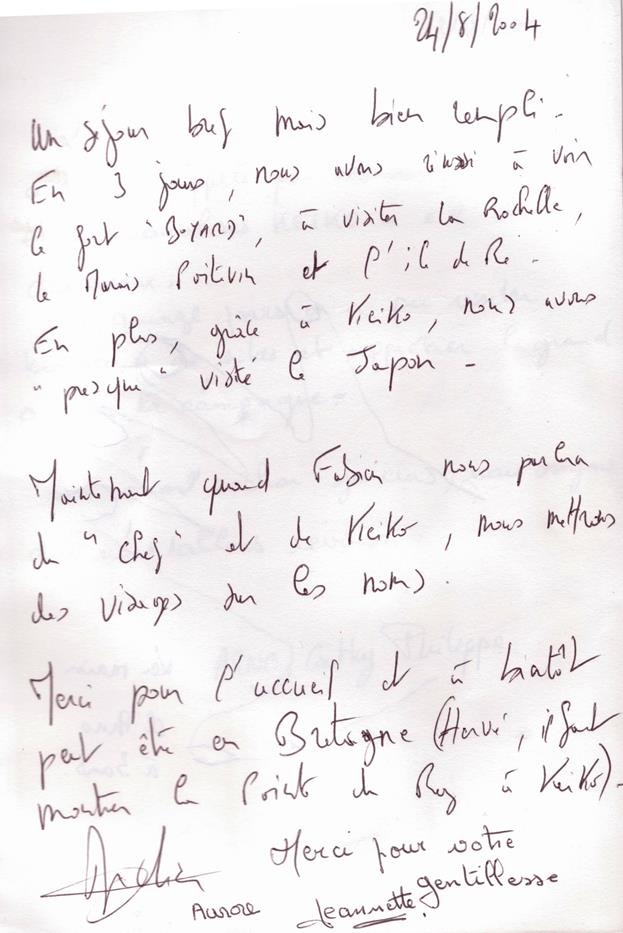 24/8/2004
Un séjour bref mais bien rempli.
En 3 jours, nous avons réussi à voir
le fort "BOYARD", à visiter La Rochelle,
le Marais Poitevin et l'île de Ré.
En plus, grâce à Keiko, nous avons
"presque" visité le Japon -
Maintenant quand Fabien nous parlera
du "chef" et de Keiko, nous mettrons
des visages sur les noms.
Merci pour l'accueil et à bientôt
peut être en Bretagne (Hervé, il faut
montrer la Pointe du Raz à Keiko).
Merci pour votre
gentillesse
Aurore Jeannette.